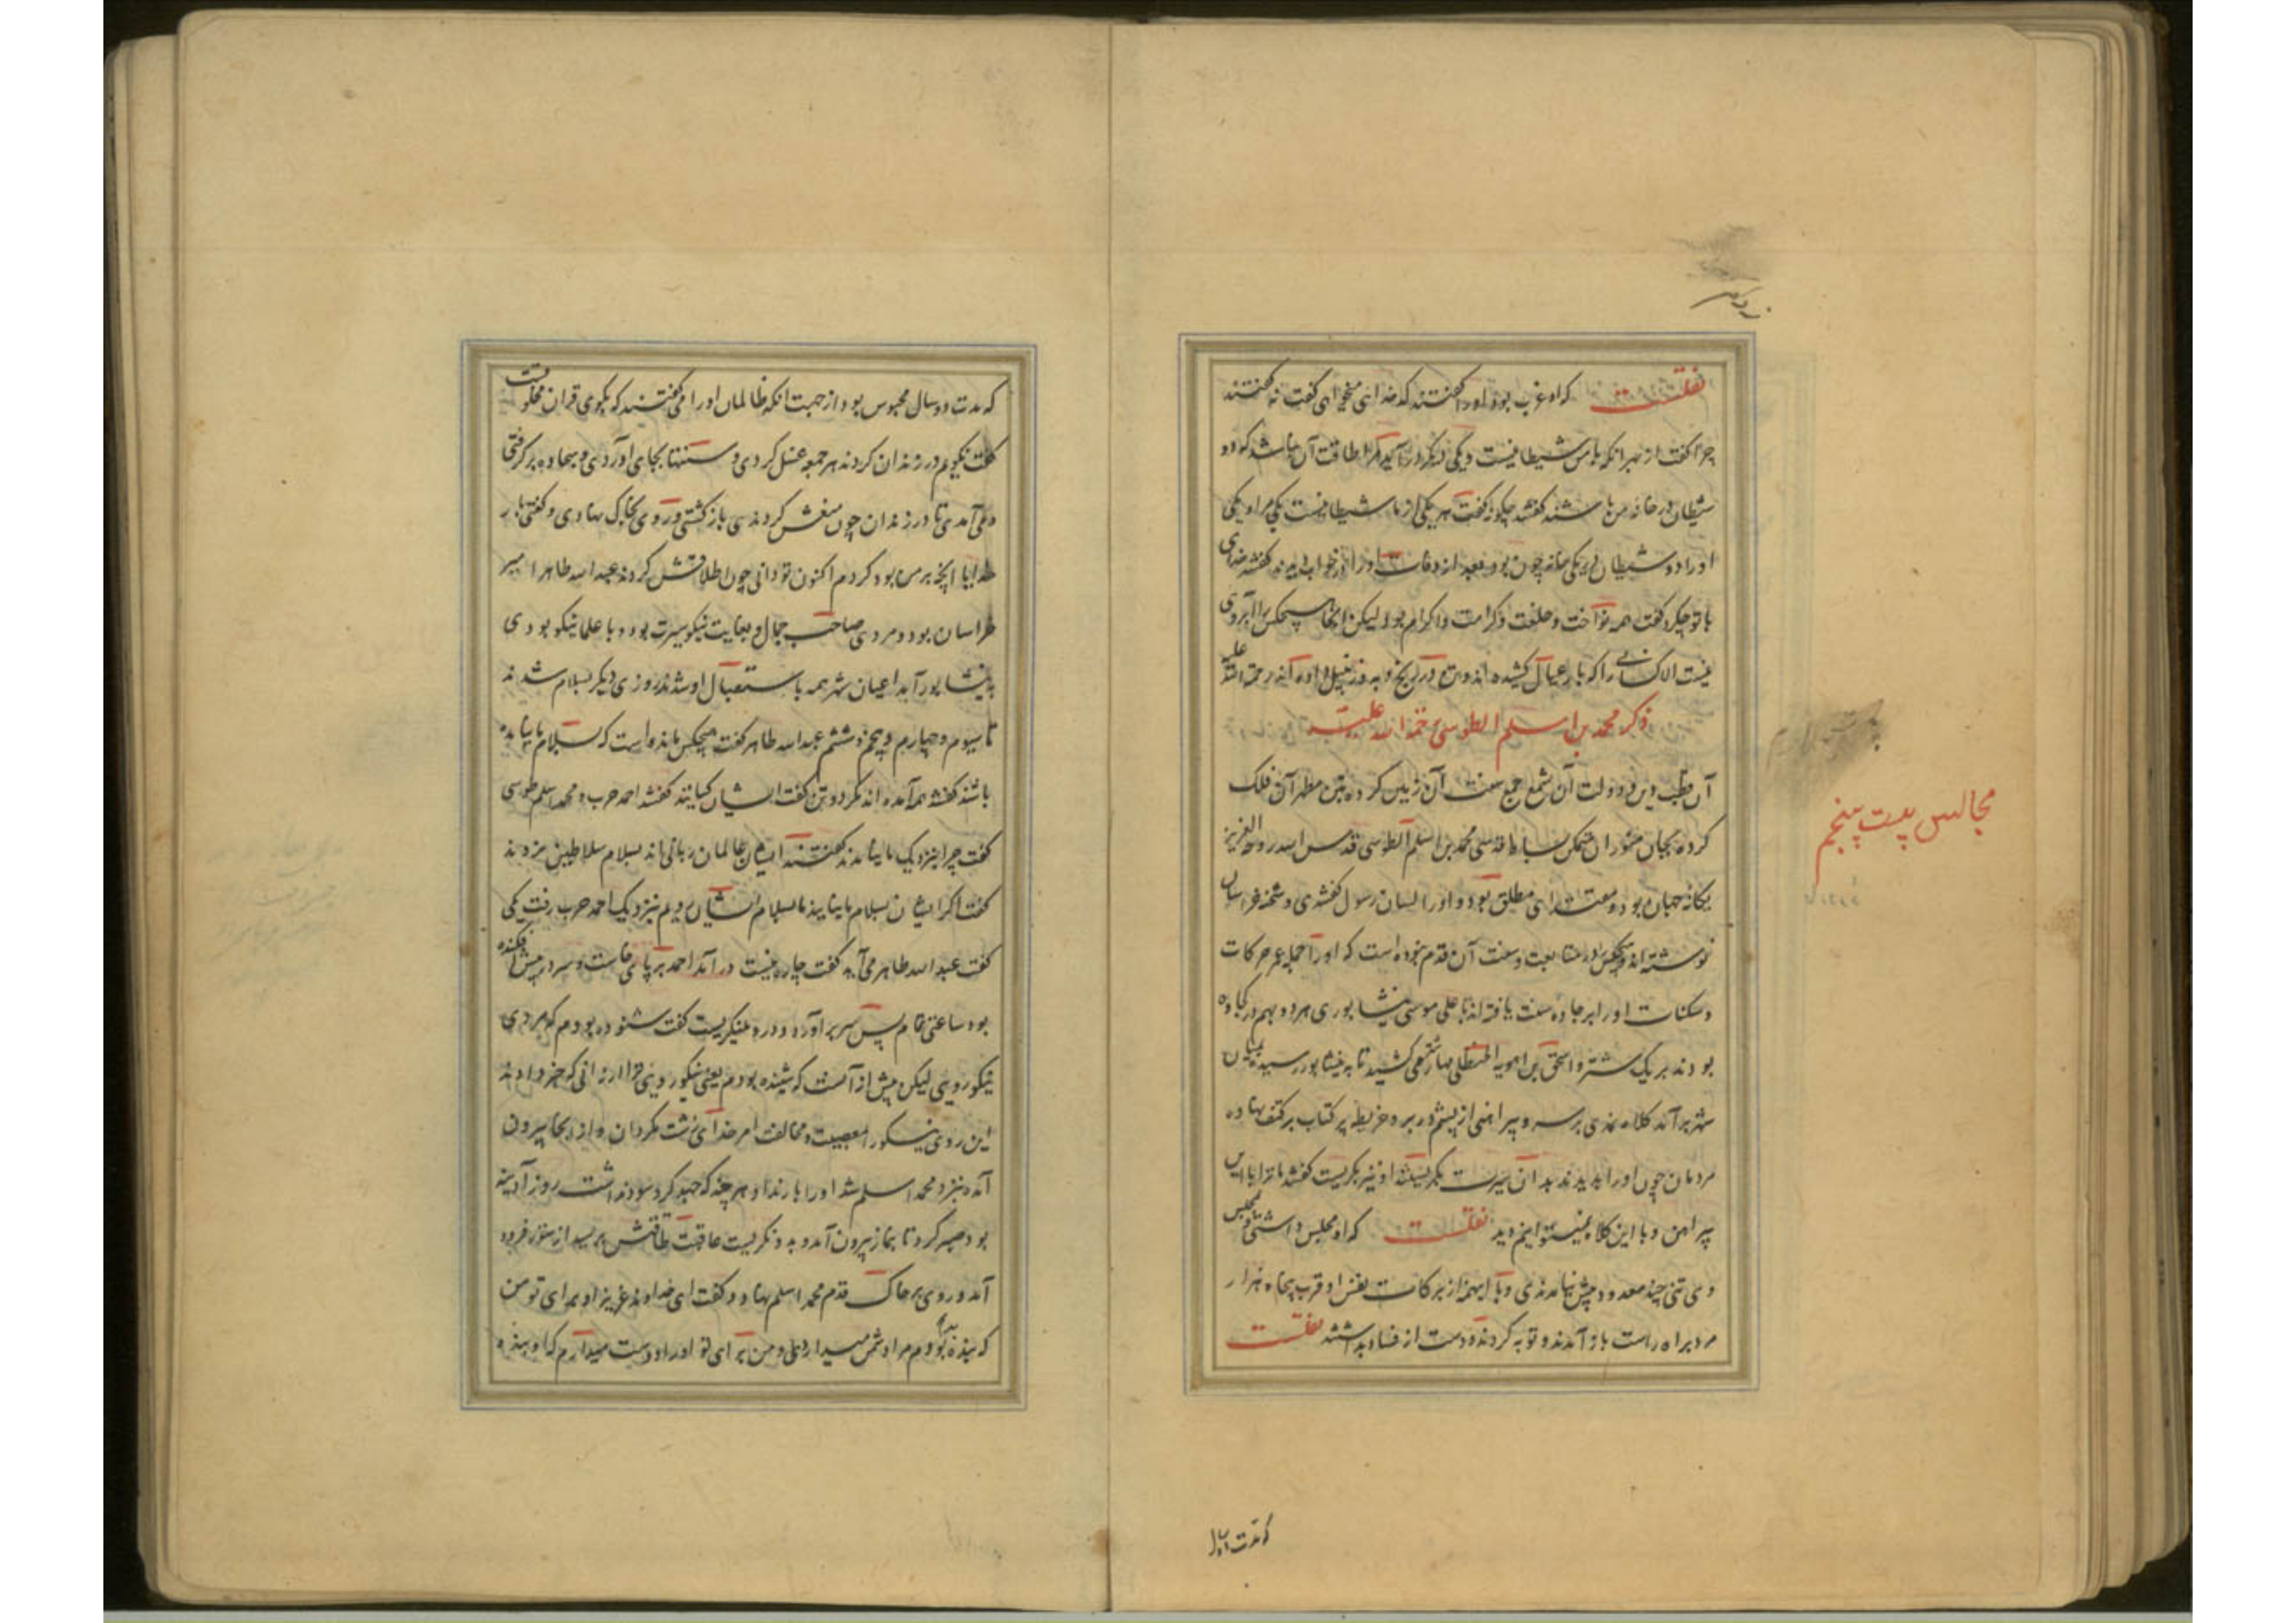 نقلست که او عزب بود او را گفتند که خدائی میخواهی گفت نه گفتند
چرا گفت از بهر آنکه با من شیطانیست و یکی دیگر درآید مرا طاقت آن نباشد که دو
شیطان در خانه من باشند گفتند چگونه گفت هر یکی از ما شیطانیست یکی مرا و یکی
او را دو شیطان در یکی خانه چون بود بعد از وفات او را در خواب دیدند گفتند خدای
با تو چکرد گفت همه نواخت و خلعت و کرامت و اکرام بود لیکن اینجا هیچکس را آبروی
نیست الا کسانی را که بار عیال کشیده اند و تن در رنج و به رحمة الله علیه
ذکر محمد بن اسلم الطوسی رحمة الله علیه
آن قطب دین و دولت آن شمع جمع سنت آن زمین کرده بتن مطهر آن فلک
کرده بجان منور آن متمکن بساط قدسی محمد بن اسلم الطوسی قدس الله روحه العزیز
یگانه جهان بود و مقتدای مطلق بود و او را لسان رسول گفتندی و شحنه خراسان
نوشته اند و هیچکس را در متابعت و سنت آن قدم نبوده است که او را جمله عمر حرکات
و سکنات او را بر جاده سنت یافته اند با علی موسی نیشابوری هر دو بهم در کجاوه
بودند بر یک شتر و اسحق بن راهویه الحنظلی مهار شتر می کشید تا به نیشابور رسید بمیان
شهر برآمد کلاه نمدی بر سر و پیراهنی از پشم در بر و خریطه پر کتاب بر کتف نهاده
مردمان چون او را بدیدند بدان سیرت بگریستند او نیز بگریست گفتند ما ترا با این
پیراهن و با این کلاه نمیتوانیم دید نقلست که او مجلس داشتی و بمجلس
وی تنی چند معدود بیش نیامدندی و با اینهمه از برکات نفس او قرب پنجاه هزار
مرد براه راست باز آمدند و توبه کردند و دست از فساد بداشتند نقلست
که مدت دو
مجالس بیست پنجم
که مدت دو سال محبوس بود از جهت آنکه ظالمان او را می گفتند که بگوی قرآن مخلوقست
گفت نگویم در زندان کردند هر جمعه غسل کردی و سنتها بجای آوردی و سجاده برگرفتی
و می آمدی تا در زندان چون منعش کردندی بازگشتی و روی بخاک نهادی و گفتی بار
خدایا آنچه بر من بود کردم اکنون تو دانی چون اطلاقش کردند عبد الله طاهر امیر
خراسان بود و مردی صاحب جمال و بغایت نیکو سیرت بود و با علما نیکو بودی
به نیشابور آمد اعیان شهر همه باستقبال او شدند روزی دیگر بسلام شدند
تا سیوم و چهارم و پنجم و ششم عبد الله طاهر گفت هیچکس مانده است که بسلام ما نیامده
باشند گفتند همه آمده اند مگر دو تن گفت ایشان کیانند گفتند احمد حرب و محمد اسلم طوسی
گفت چرا بنزدیک ما نیامدند گفتند ایشان عالمان ربانی اند بسلام سلاطین نروند
گفت اگر ایشان بسلام ما نیایند ما بسلام ایشان رویم بنزدیک احمد حرب رفت یکی
گفت عبد الله طاهر می آید گفت چاره نیست درآمد احمد بر پای خاست و سر در پیش افکنده
بود ساعتی تمام پس سر برآورد و در وی مینگریست گفت شنوده بودم که مردی
نیکو رویی لیکن بیش از آنست که شنیده بودم یعنی نیکو رویی تر از آنی که خبر دادند
این روی نیکو را بمعصیت و مخالفت امر خدای زشت مگردان و از اینجا بیرون
آمد بنزد محمد اسلم شد او را بار نداد هر چند که جهد کرد سود نداشت روز آدینه
بود صبر کرد تا بنماز بیرون آمد و بدو نگریست عاقبت طاقتش برسید از ستور فرود
آمد و روی بر خاک قدم محمد اسلم نهاد و گفت ای خداوند عزیز او برای تو من
که بنده بدم مرا دشمن میدارد و من برای تو او را دوست میدارم که او بنده